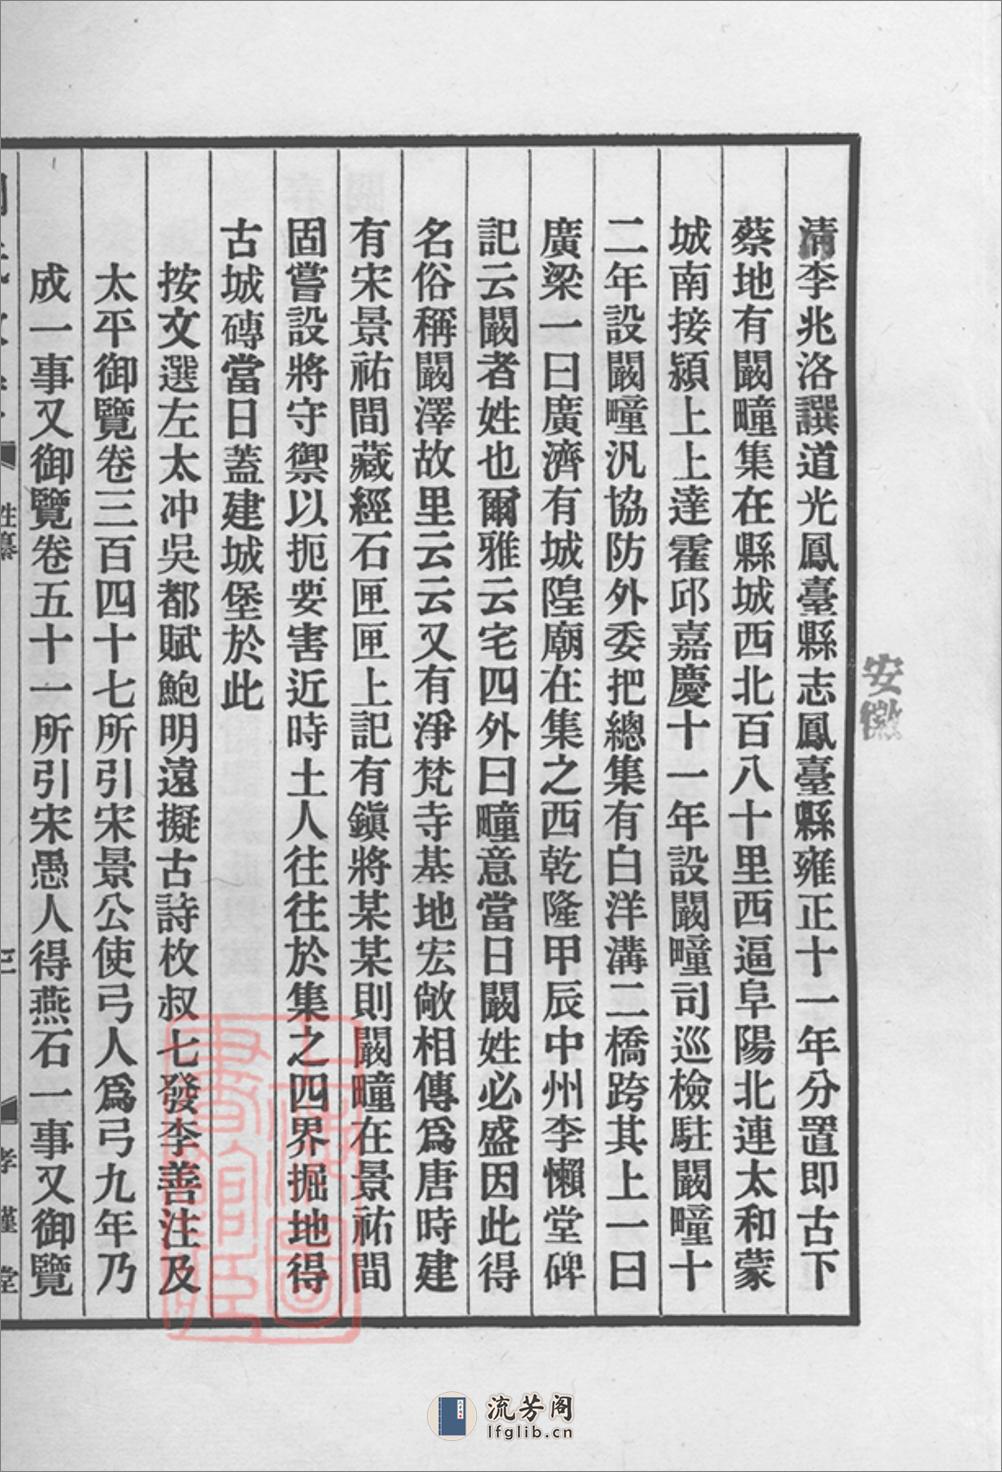 安徽
清李兆洛譔道光鳳臺縣志鳳臺縣雍正十一年分置即古下
蔡地有闞疃集在縣城西北百八十里西逼阜陽北連太和蒙
城南接潁上上達霍邱嘉慶十一年設闞疃司巡檢駐闞疃十
二年設闞疃汛協防外委把總集有白洋溝二橋跨其上一曰
廣梁一曰廣濟有城隍廟在集之西乾隆甲辰中州李懶堂碑
記云闞者姓也爾雅云宅四外曰疃意當日闞姓必盛因此得
名俗稱闞澤故里云云又有淨梵寺基地宏敞相傳爲唐時建
有宋景祐間藏經石匣匣上記有鎭將某某則闞疃在景祐間
固嘗設將守禦以扼要害近時土人往往於集之四界掘地得
古城磚當日蓋建城堡於此
按文選左太冲吳都賦鮑明遠擬古詩枚叔七發李善注及
太平御覽卷三百四十七所引宋景公使弓人爲弓九年乃
成一事又御覽卷五十一所引宋愚人得燕石一事又御覽
姓纂
三
孝謹堂
流芳阁
lfglib.cn